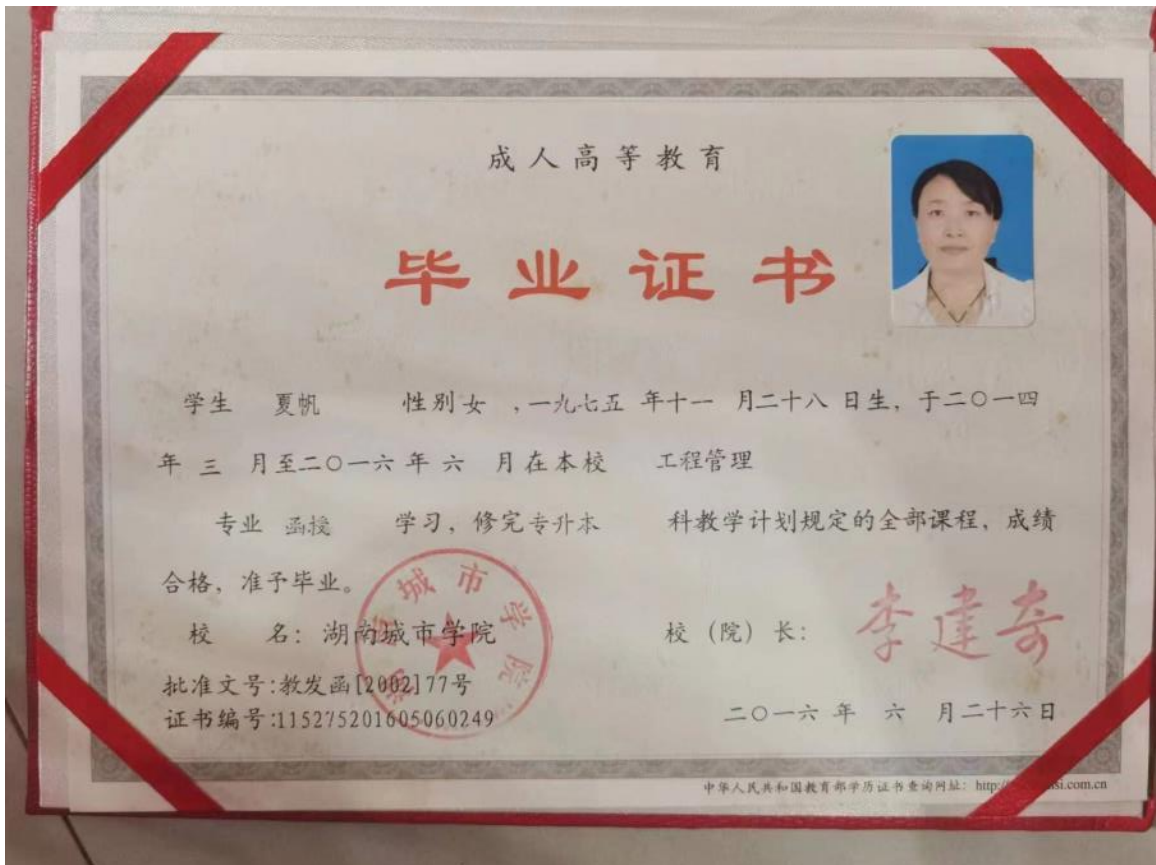 成人高等教育
毕业证书
学生 夏帆 性别女 ,一九七五 年十一 月二十八 日生, 于二〇一四
年 三 月至二〇一六 年 六 月在本校 工程管理
专业 函授 学习, 修完专升本 科教学计划规定的全部课程, 成绩
合格, 准予毕业。
校 名: 湖南城市学院 校(院)长: 李建奇
批准文号:教发函[2002]77号
证书编号:115275201605060249
二〇一六 年 六 月二十六日
中华人民共和国教育部学历证书查询网址: http:/ si.com.cn
城市学院